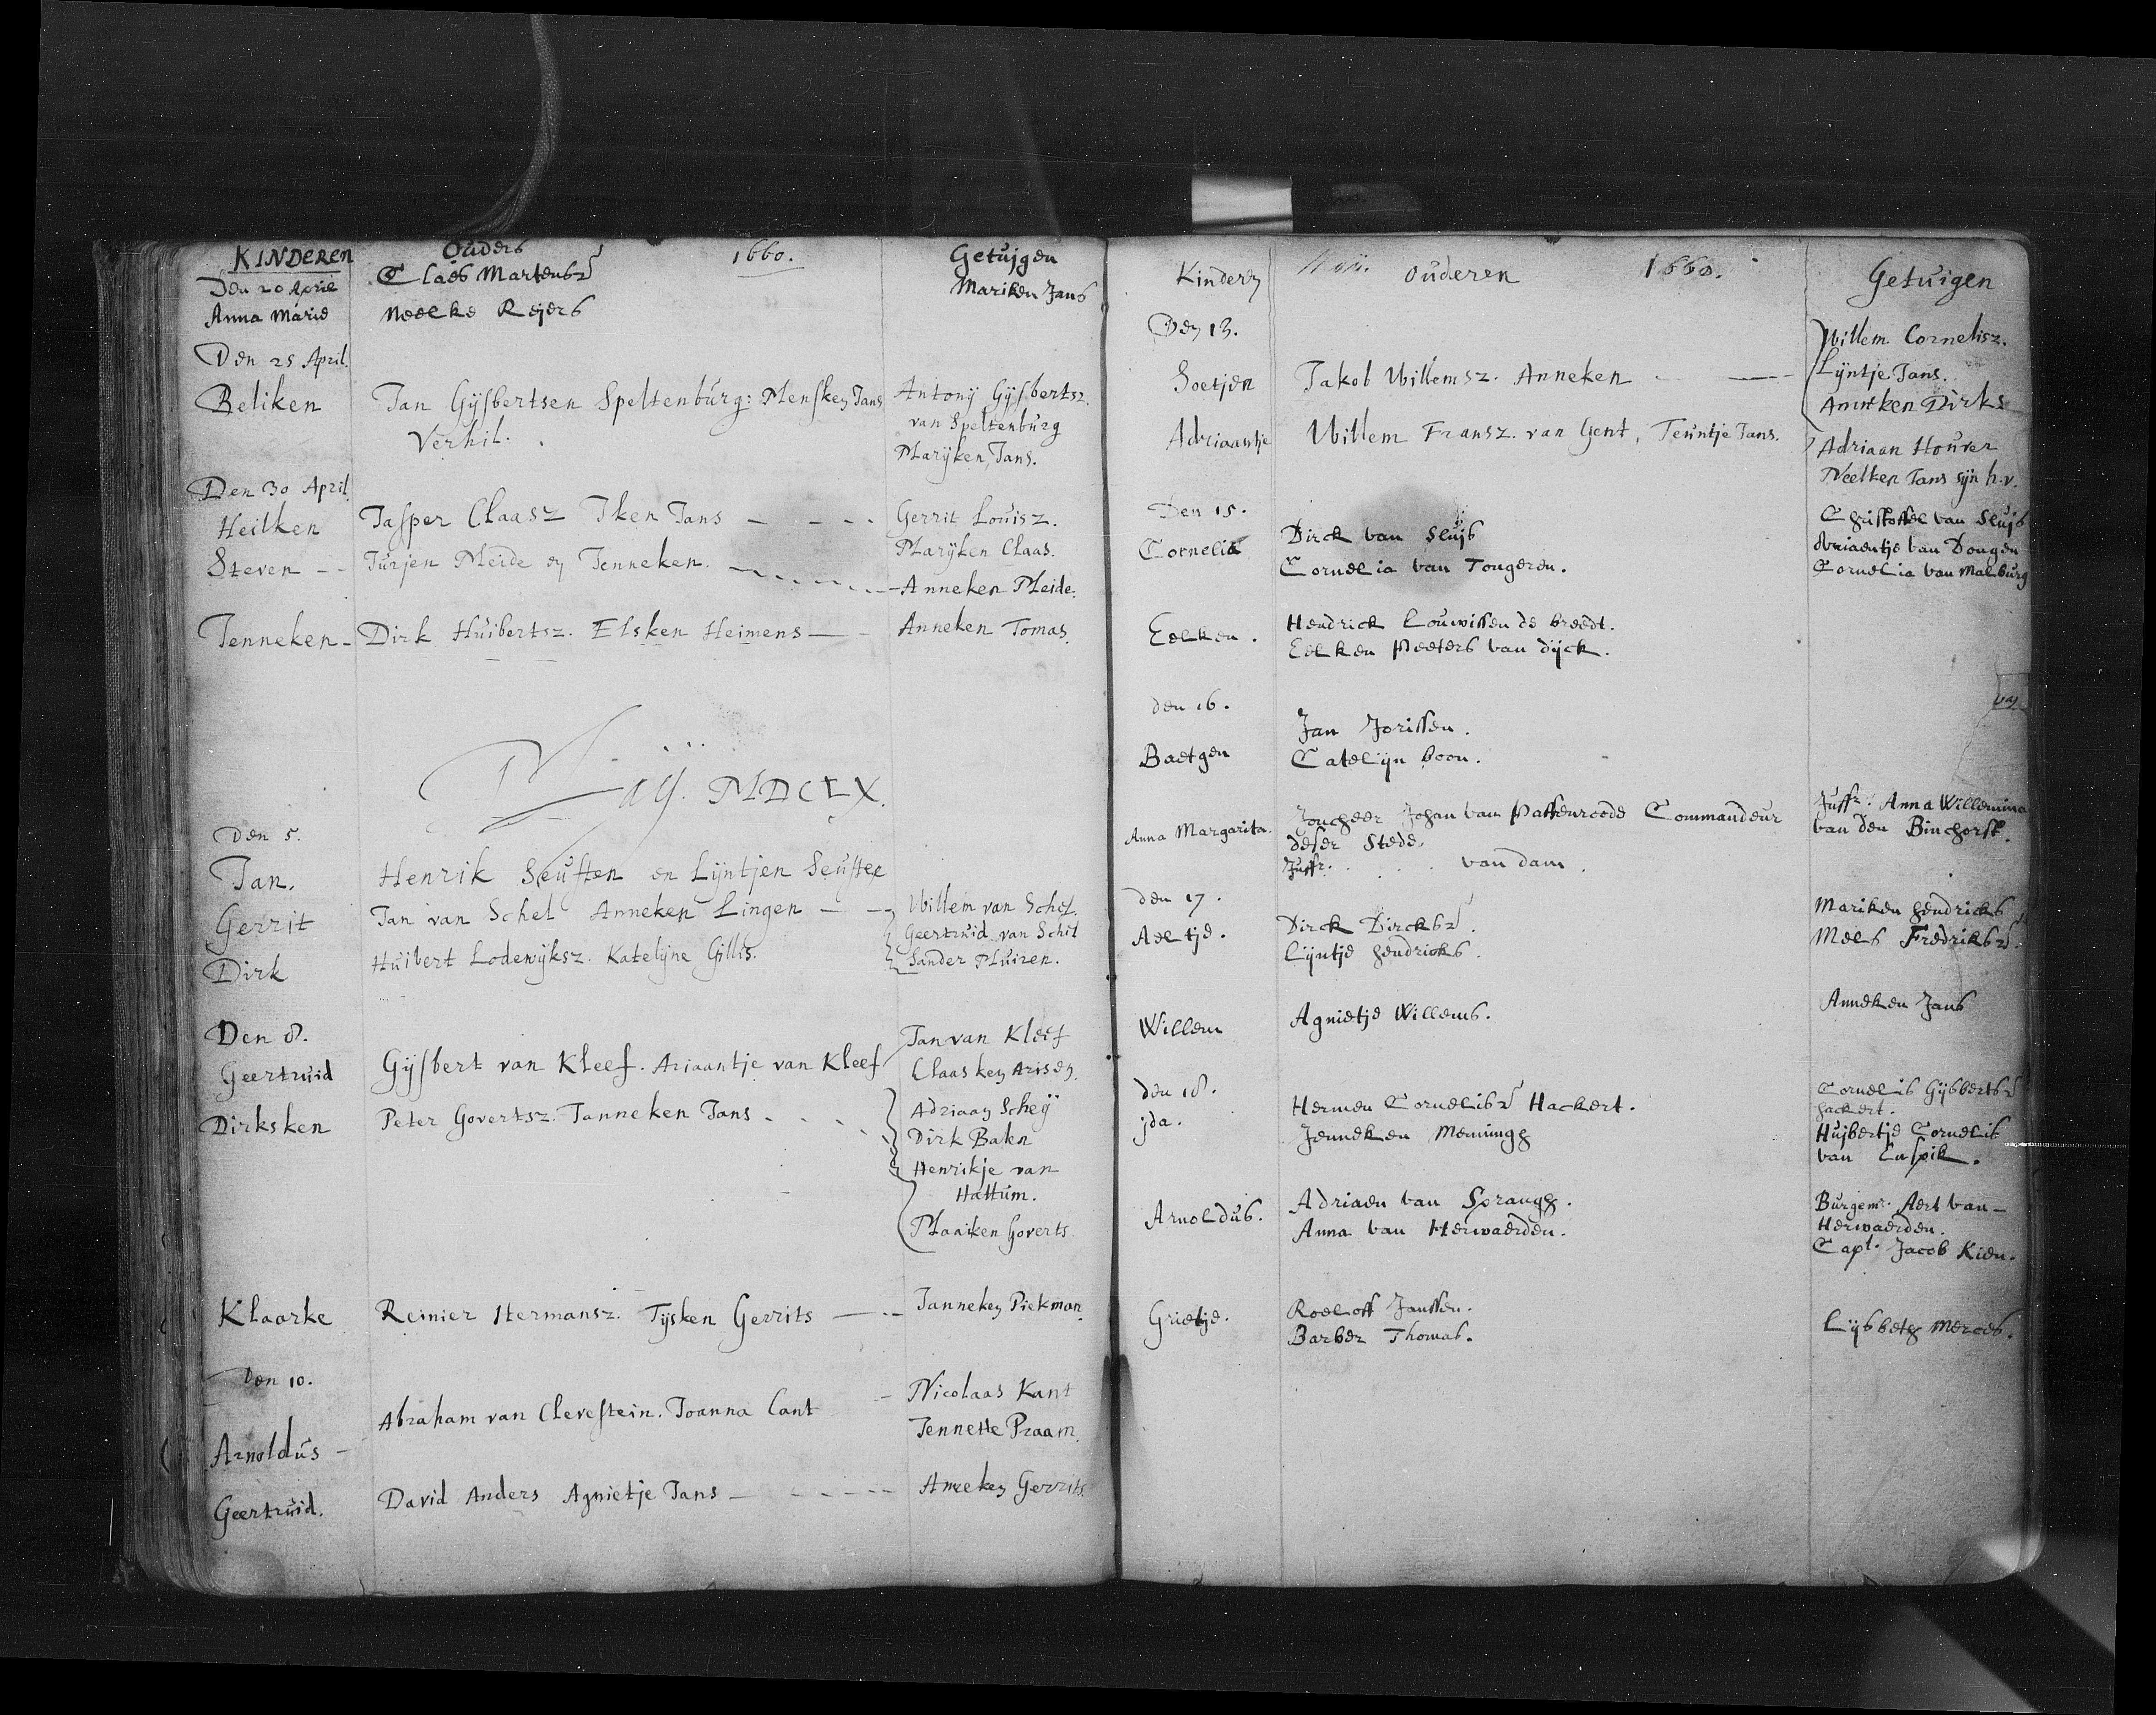 KINDEREN Ouders 1660. Getuijgen
Den 20 April Claes Martensz Mariken Jans
Anna Marie Neelke Reijers
Den 25 April.
Beliken Jan Gijsbertsen Speltenburg: Mensken Jans Antonij Gijsbertsz.
Verhil. van Speltenburg
Marijken Jans.
Den 30 April
Heilken Jasper Claasz Iken Jans Gerrit Louisz.
Steven Jurjen Meide en Jenneken. Marijken Claas.
Anneken Meide.
Jenneken Dirk Huibertsz. Elsken Heimens Anneken Tomas.
Maij. MDCLX.
Den 5.
Jan. Henrik Seusten en Lijntjen Seusten
Gerrit Jan van Schel Anneken Lingen Willem van Schel.
Geertruid van Schil
Dirk Huibert Lodewijksz. Katelijne Gillis. Sander Muiren.
Den 8. Jan van Kleef
Geertruid Gijsbert van Kleef. Ariaantje van Kleef Claasken Arisen.
Dirksken Peter Govertsz. Janneken Jans Adriaan Scheij
Dirk Balen
Henrikje van
Hattum.
Maaiken Goverts
Klaarke Reinier Hermansz. Tijsken Gerrits Janneken Piekman.
Den 10.
Arnoldus Abraham van Clevestein. Joanna Cant Nicolaas Kant
Jennette Praam.
Geertruid. David Anders Agnietje Jans Anneken Gerrits.
Kinderen Maij. ouderen 1660. Getuigen
Den 13. Willem Cornelisz.
Soetjen Jakob Willemsz. Anneken Lijntje Jans.
Anneken Dirks
Adriaantje Willem Fransz. van Gent, Teuntje Jans. Adriaan Houver
Neelken Jans sijn h.v.
Den 15. Christoffel van Sluijs
Cornelia Dirck van Sluijs Adriaentje van Dongen
Cornelia van Tongeren. Cornelia van Malburg
Eelken. Hendrick Louwissen de breedt.
Eelken Peeters van dijck.
den 16.
Baetgen Jan Jorissen.
Catelijn boon.
Anna Margarita. Joncheer Johan van Paffenroode Commandeur Juffr. Anna Willemina
deser Stede. van den Binchorst.
Juffr. . . . . van dam.
den 17. Mariken hendricks
Aeltje. Dirck Dircksz. Mels Fredriksz.
Lijntje hendricks.
Willem Agnietje Willems. Anneken Jans
den 18. Cornelis Gijsbertsz
jda. Hermen Cornelisz Hackert. hackert.
Jenneken Menningh Huijbertje Cornelis
van Euspik.
Arnoldus. Adriaen van Sprangh. Burgemr. Aert van
Anna van Herwaerden. Herwaerden.
Capt. Jacob Kien.
Grietje. Roeloff Janssen.
Barber Thomas. Lijsbeth Merces.